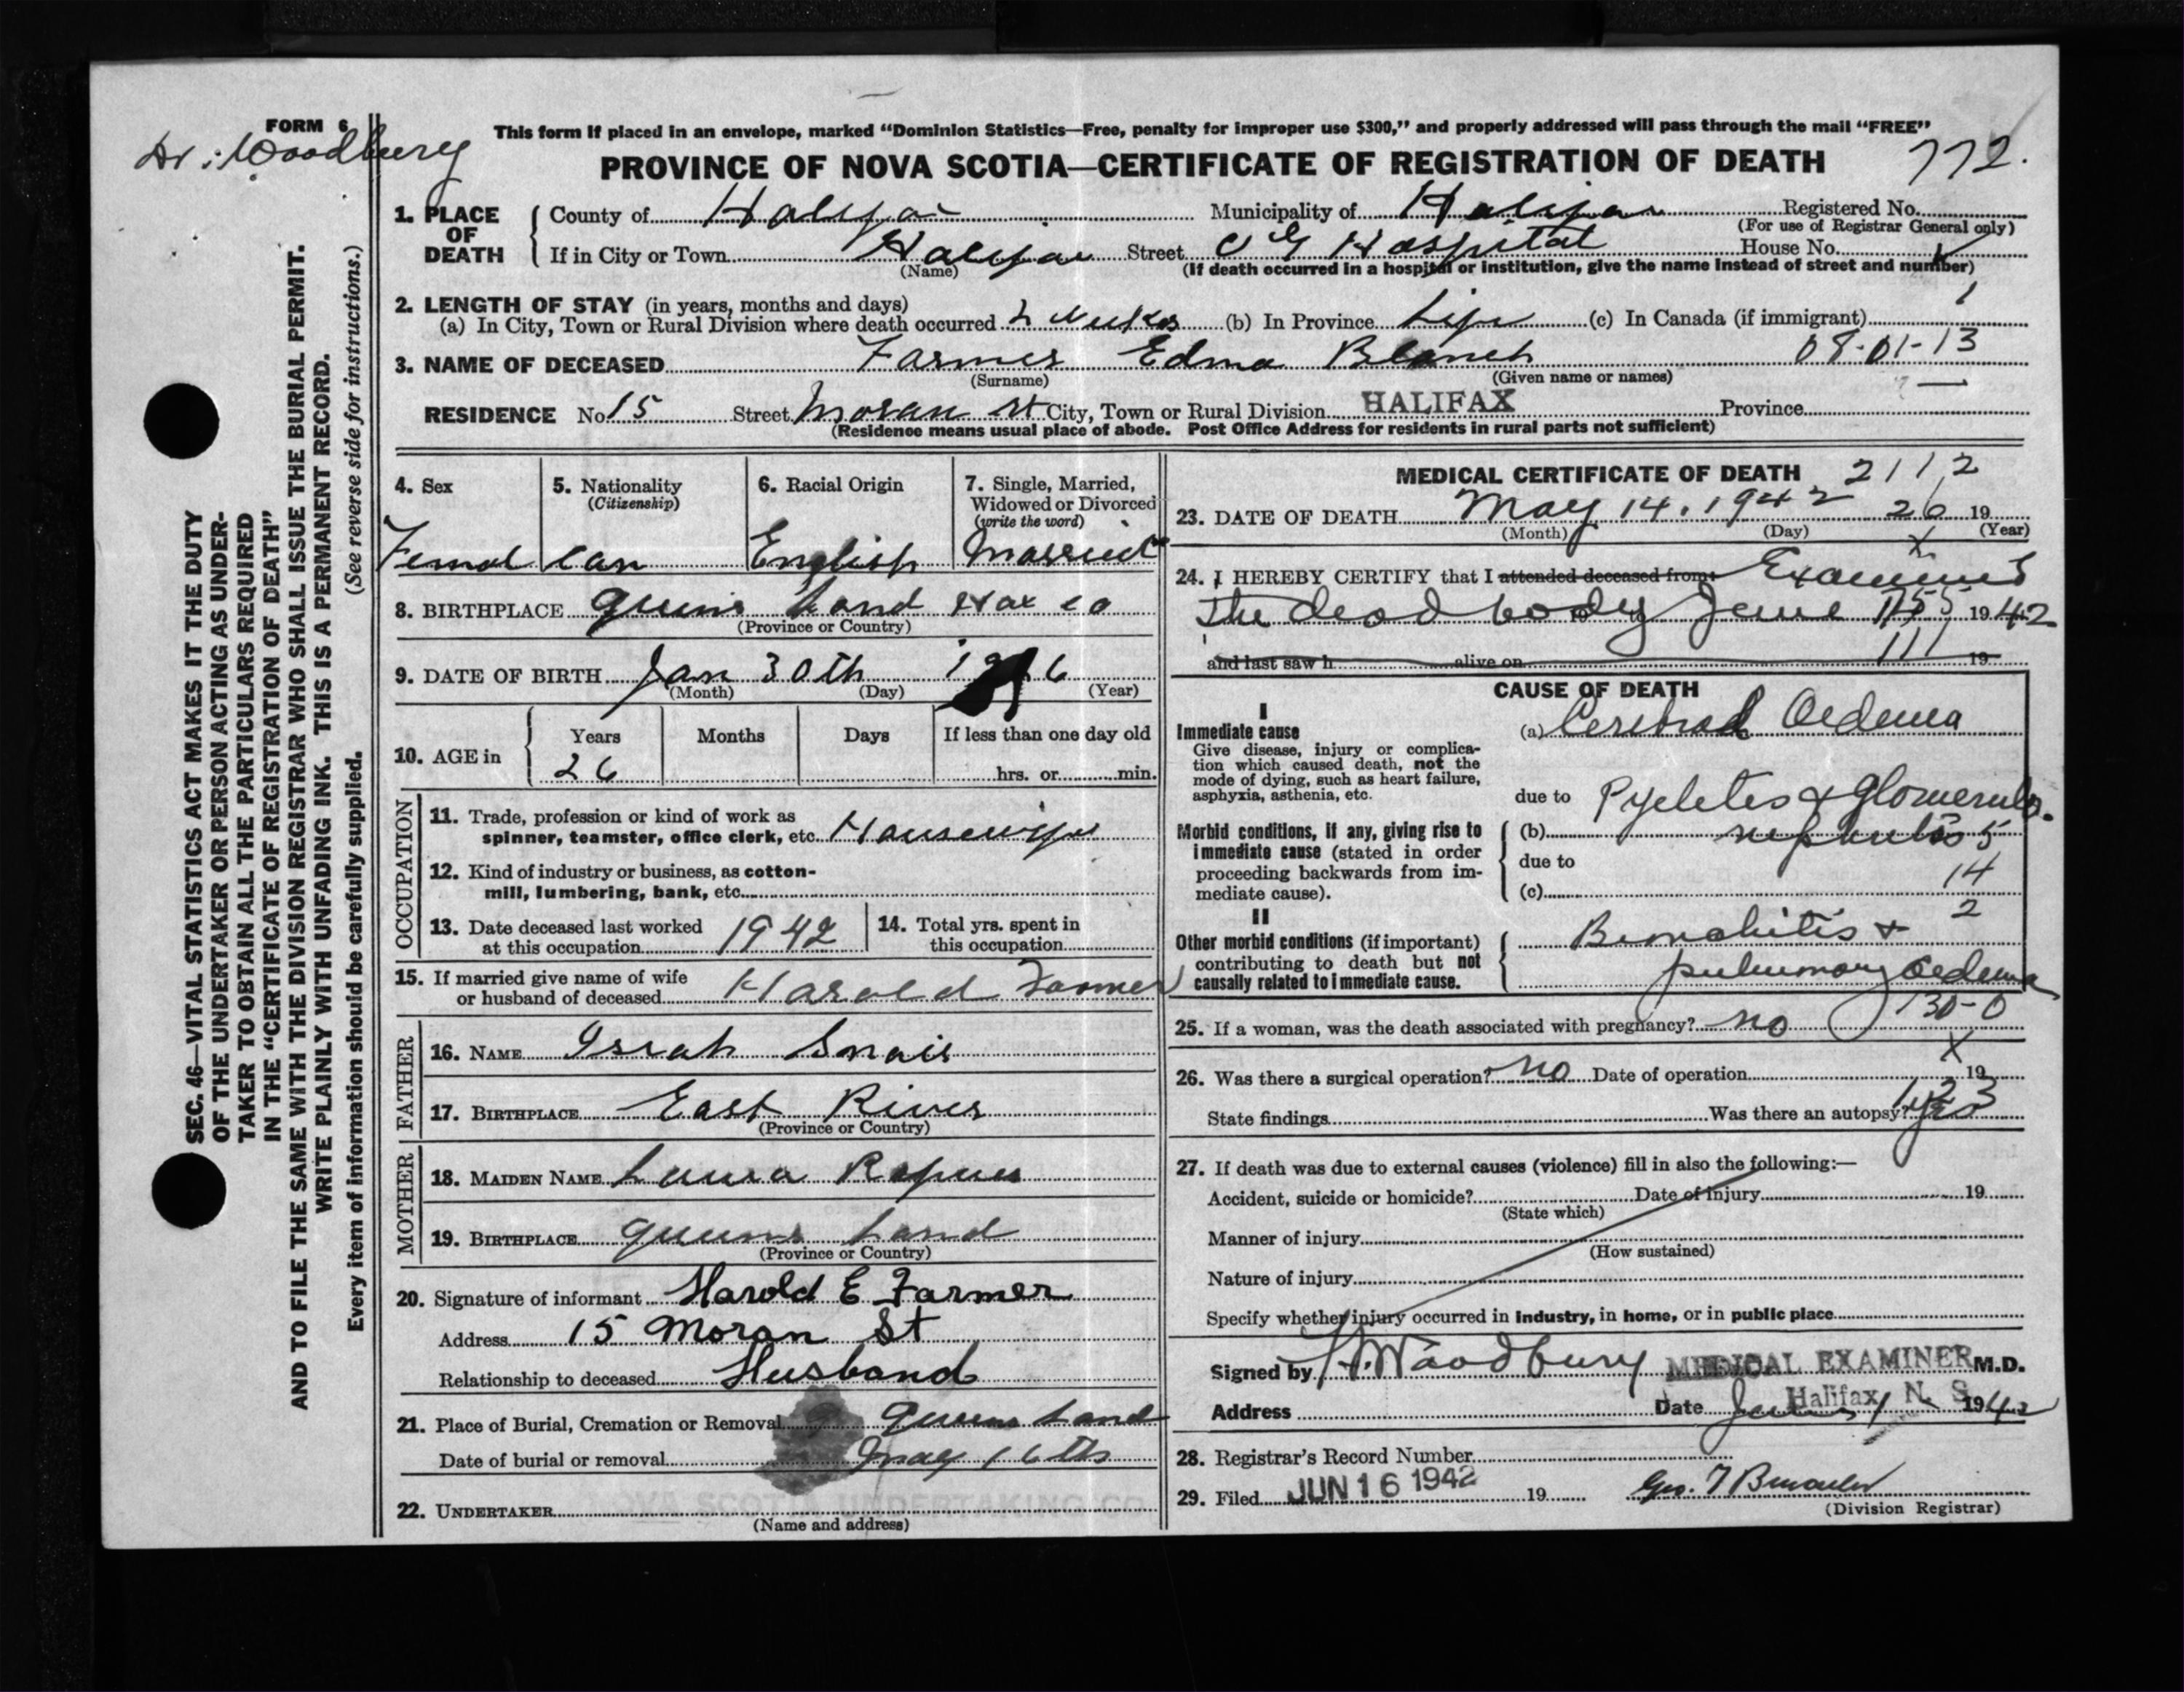 FORM 6
Dr. Woodbury
This form if placed in an envelope, marked “Dominion Statistics—Free, penalty for improper use $300,” and properly addressed will pass through the mail “FREE”
PROVINCE OF NOVA SCOTIA—CERTIFICATE OF REGISTRATION OF DEATH 772.
1. PLACE OF DEATH County of Halifax Municipality of Halifax Registered No.
(For use of Registrar General only)
If in City or Town Halifax Street V G Hospital House No.
(Name) (If death occurred in a hospital or institution, give the name instead of street and number)
2. LENGTH OF STAY (in years, months and days)
(a) In City, Town or Rural Division where death occurred 2 weeks (b) In Province Life (c) In Canada (if immigrant) 1
3. NAME OF DECEASED Farmer Edna Blanch 08-01-13
(Surname) (Given name or names)
RESIDENCE No. 15 Street Moran St City, Town or Rural Division HALIFAX Province
(Residence means usual place of abode. Post Office Address for residents in rural parts not sufficient)
4. Sex 5. Nationality (Citizenship) 6. Racial Origin 7. Single, Married, Widowed or Divorced (write the word)
Femal Can English Married
8. BIRTHPLACE Queens Land Hax Co
(Province or Country)
9. DATE OF BIRTH Jan 30th 1916
(Month) (Day) (Year)
10. AGE in Years Months Days If less than one day old
26 hrs. or min.
OCCUPATION
11. Trade, profession or kind of work as
spinner, teamster, office clerk, etc. Housewife
12. Kind of industry or business, as cotton-
mill, lumbering, bank, etc.
13. Date deceased last worked at this occupation 1942 14. Total yrs. spent in this occupation
15. If married give name of wife
or husband of deceased Harold Farmer
FATHER
16. NAME Israh Snair
17. BIRTHPLACE East River
(Province or Country)
MOTHER
18. MAIDEN NAME Laura
19. BIRTHPLACE Queens Land
(Province or Country)
20. Signature of informant Harold E Farmer
Address 15 Moran St
Relationship to deceased Husband
21. Place of Burial, Cremation or Removal Queens Land
Date of burial or removal May 16th
22. UNDERTAKER
(Name and address)
MEDICAL CERTIFICATE OF DEATH 2112
23. DATE OF DEATH May 14. 1942 26 19
(Month) (Day) (Year)
X
24. I HEREBY CERTIFY that I attended deceased from: Examined
the dead body June 1942
and last saw h alive on 111 19
CAUSE OF DEATH
I
Immediate cause (a) Cerebral Oedema
Give disease, injury or complica-
tion which caused death, not the
mode of dying, such as heart failure,
asphyxia, asthenia, etc.
due to Pyelitis & Glomerulo.
Morbid conditions, if any, giving rise to (b) nephritis 5
immediate cause (stated in order due to
proceeding backwards from im- 14
mediate cause). (c)
II 2
Other morbid conditions (if important) Bronchitis &
contributing to death but not
causally related to immediate cause. pulmonary Oedema
130-0
25. If a woman, was the death associated with pregnancy? no
X
26. Was there a surgical operation? no Date of operation 19
State findings Was there an autopsy? yes
27. If death was due to external causes (violence) fill in also the following:—
Accident, suicide or homicide? Date of injury 19
(State which)
Manner of injury
(How sustained)
Nature of injury
Specify whether injury occurred in industry, in home, or in public place
Signed by Woodbury MEDICAL EXAMINER M.D.
Halifax, N. S.
Address Date June 1 1942
28. Registrar's Record Number
29. Filed JUN 16 1942 19 Geo. F
(Division Registrar)
SEC. 46—VITAL STATISTICS ACT MAKES IT THE DUTY
OF THE UNDERTAKER OR PERSON ACTING AS UNDER-
TAKER TO OBTAIN ALL THE PARTICULARS REQUIRED
IN THE “CERTIFICATE OF REGISTRATION OF DEATH”
AND TO FILE THE SAME WITH THE DIVISION REGISTRAR WHO SHALL ISSUE THE BURIAL PERMIT.
WRITE PLAINLY WITH UNFADING INK. THIS IS A PERMANENT RECORD.
Every item of information should be carefully supplied. (See reverse side for instructions.)